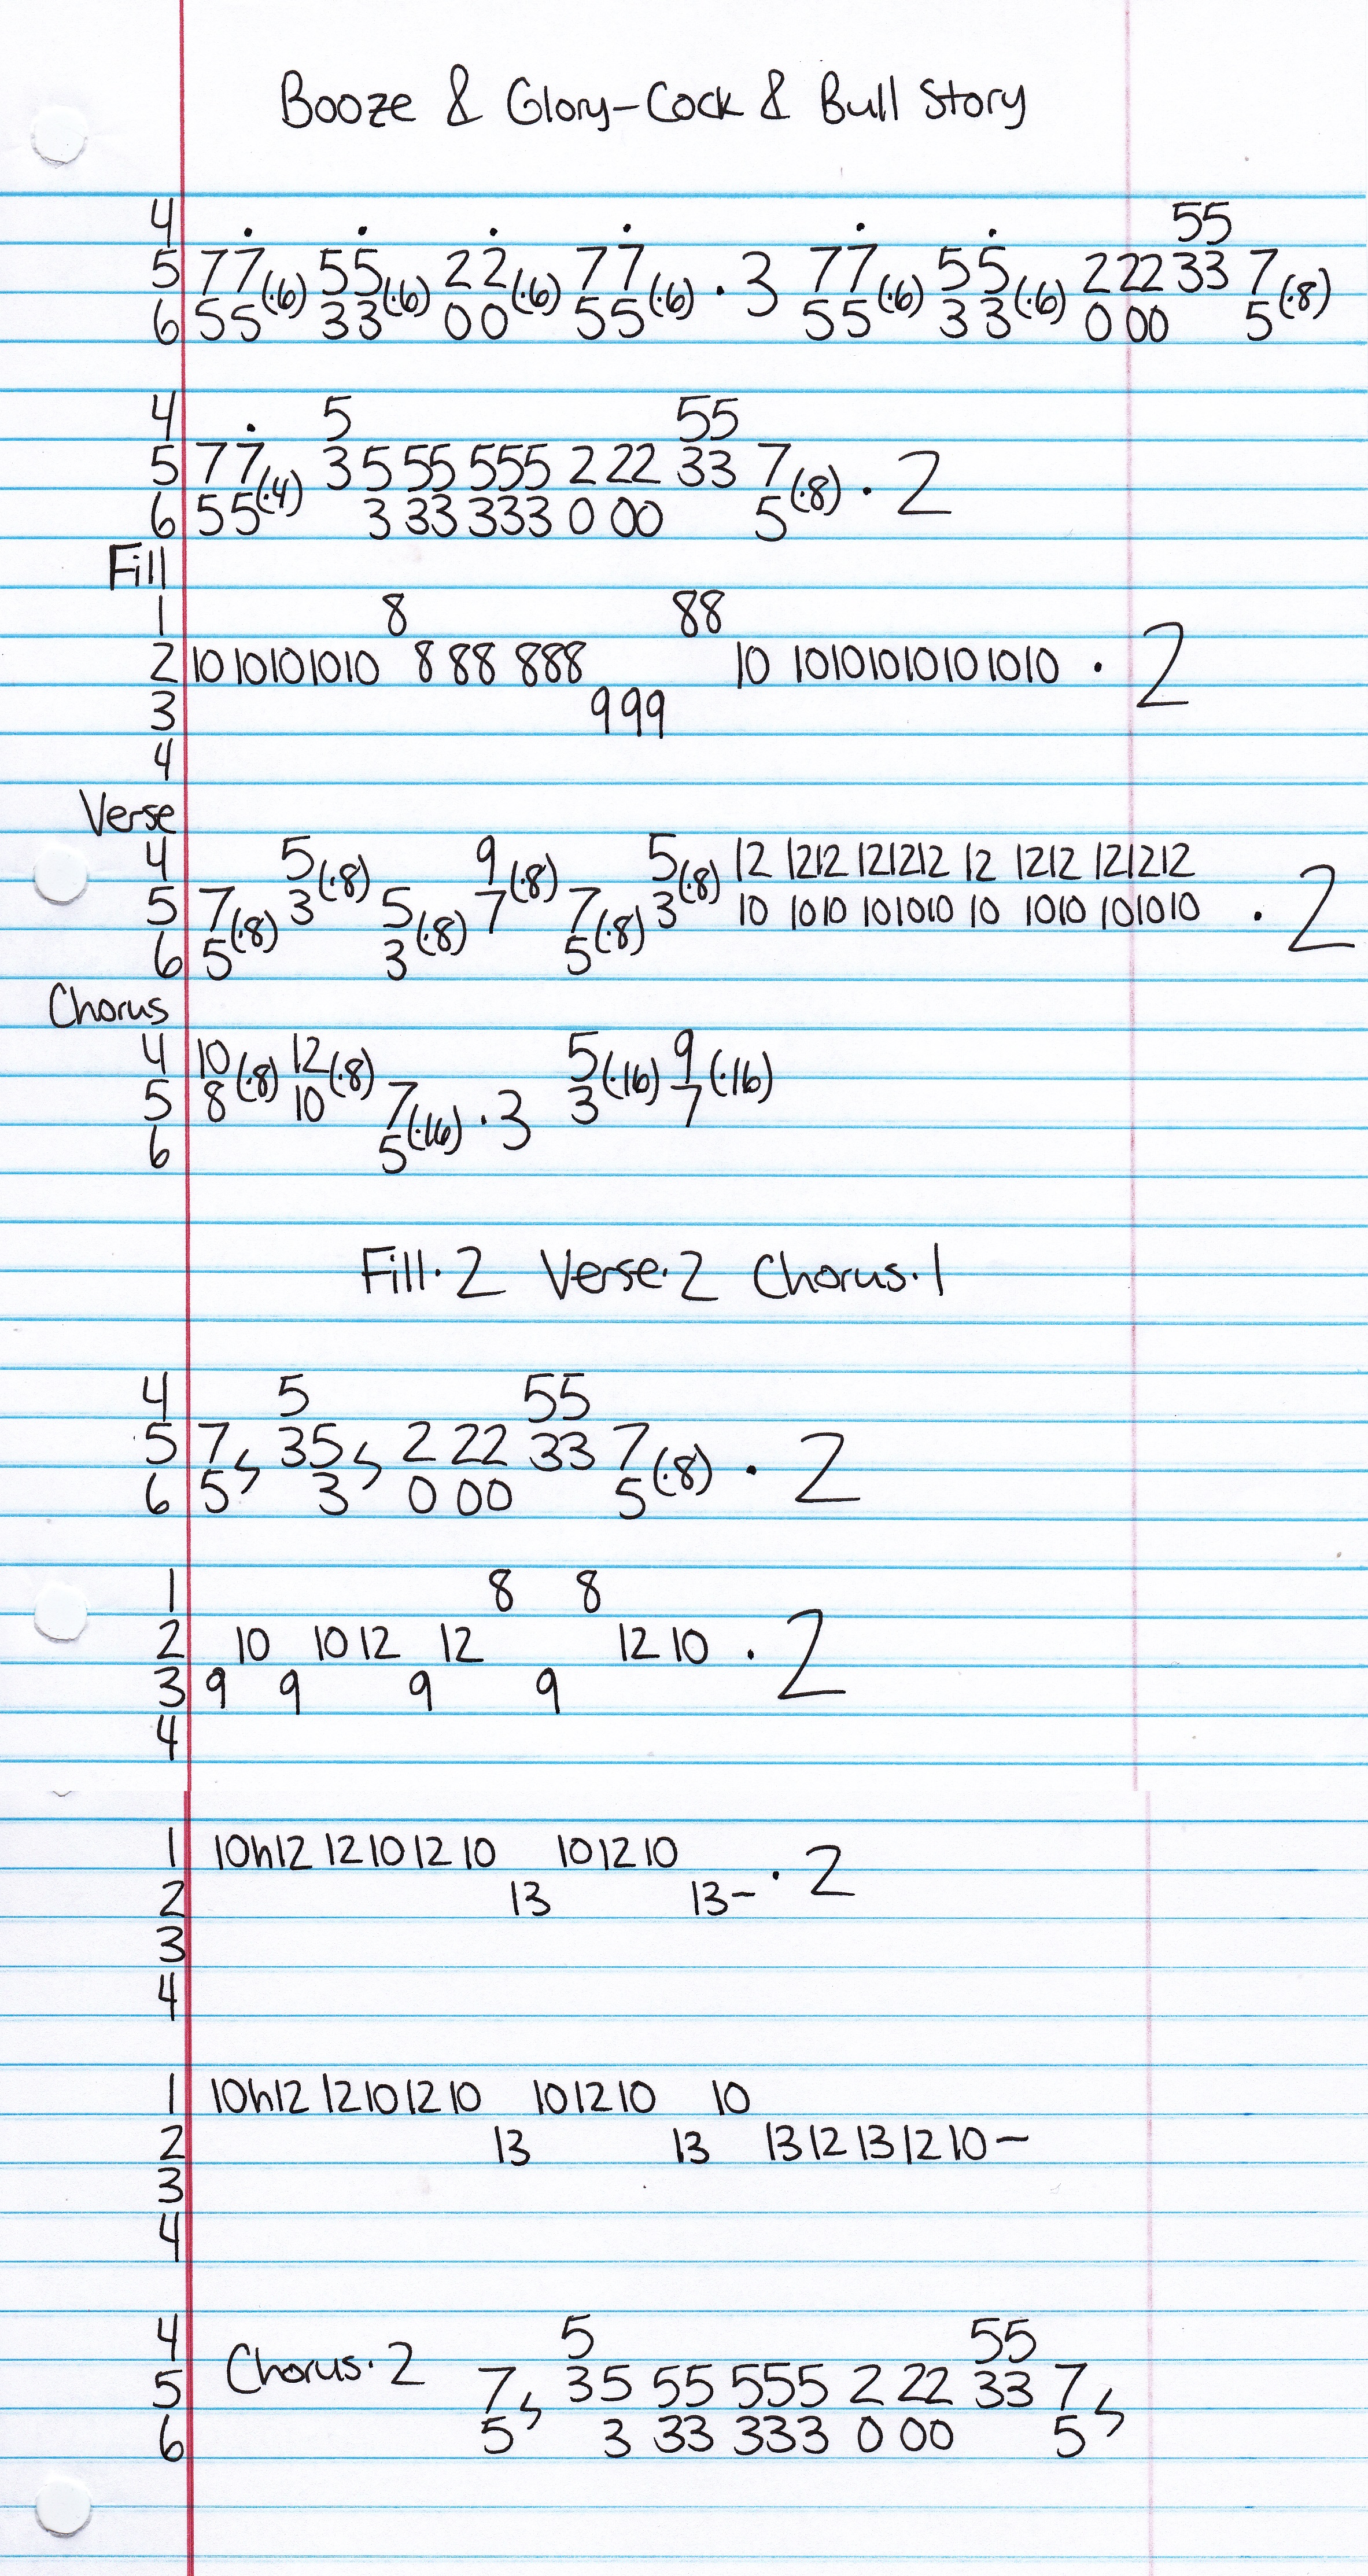 Booze & Glory-Cock & Bull Story
4 . . . . . . 55
5 77(·6) 55(·6) 22(·6) 77(·6) · 3 77(·6) 55(·6) 222 33 7(·8)
6 55 33 00 55 55 33 000 5
4 . 5 55
5 77(·4) 3 5 55 555 2 22 33 7(·8) · 2
6 55 3 33 333 0 00 5
Fill
1 8 88
2 10 10101010 8 88 888 10 10101010101010 · 2
3 999
4
Verse
4 5(·8) 9(·8) 5(·8) 12 1212 121212 12 1212 121212
5 7(·8) 3 5(·8) 7 7(·8) 3 10 1010 101010 10 1010 101010 · 2
6 5 3 5
Chorus
4 10(·8) 12(·8) 5(·16) 9(·16)
5 8 10 7(·16) · 3 3 7
6 5
Fill·2 Verse·2 Chorus·1
4 5 55
5 7 35 2 22 33 7(·8) · 2
6 5 3 0 00 5
1 8 8
2 10 10 12 12 12 10 · 2
3 9 9 9 9
4
1 10h12 12 10 12 10 10 12 10 · 2
2 13 13-
3
4
1 10h12 12 10 12 10 10 12 10 10
2 13 13 13 12 13 12 10-
3
4
4 5 55
5 Chorus·2 7 35 55 555 2 22 33 7
6 5 3 33 333 0 00 5